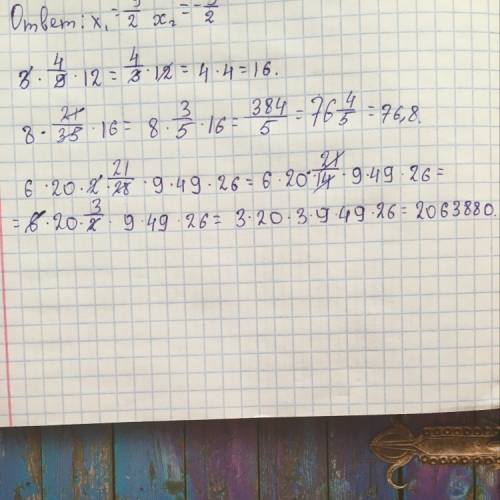 Ответ: x₁ = 9/2 x₂ = -9/2
3 · 4/9 · 12 = 4/3 · 12 = 4 · 4 = 16.
8 · 21/35 · 16 = 8 · 3/5 · 16 = 384/5 = 76 4/5 = 76,8.
6 · 20 · 2 · 21/28 · 9 · 49 · 26 = 6 · 20 · 21/14 · 9 · 49 · 26 =
= 6 · 20 · 3/2 · 9 · 49 · 26 = 3 · 20 · 3 · 9 · 49 · 26 = 2063880.